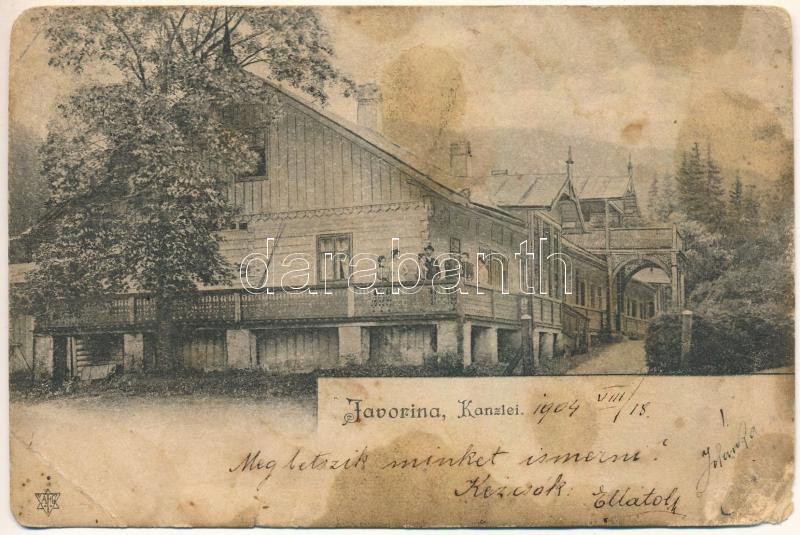 darabanth
Javorina, Kanzlei. 1904 VIII/18.
Meg letszik minket ismerni?
Kezcsok: Ellától
Jolánka